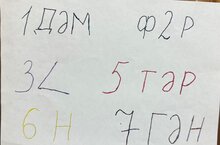 1 ДӘМ Ф2Р
3 L 5 ТӘР
6 Н 7 ГӘН